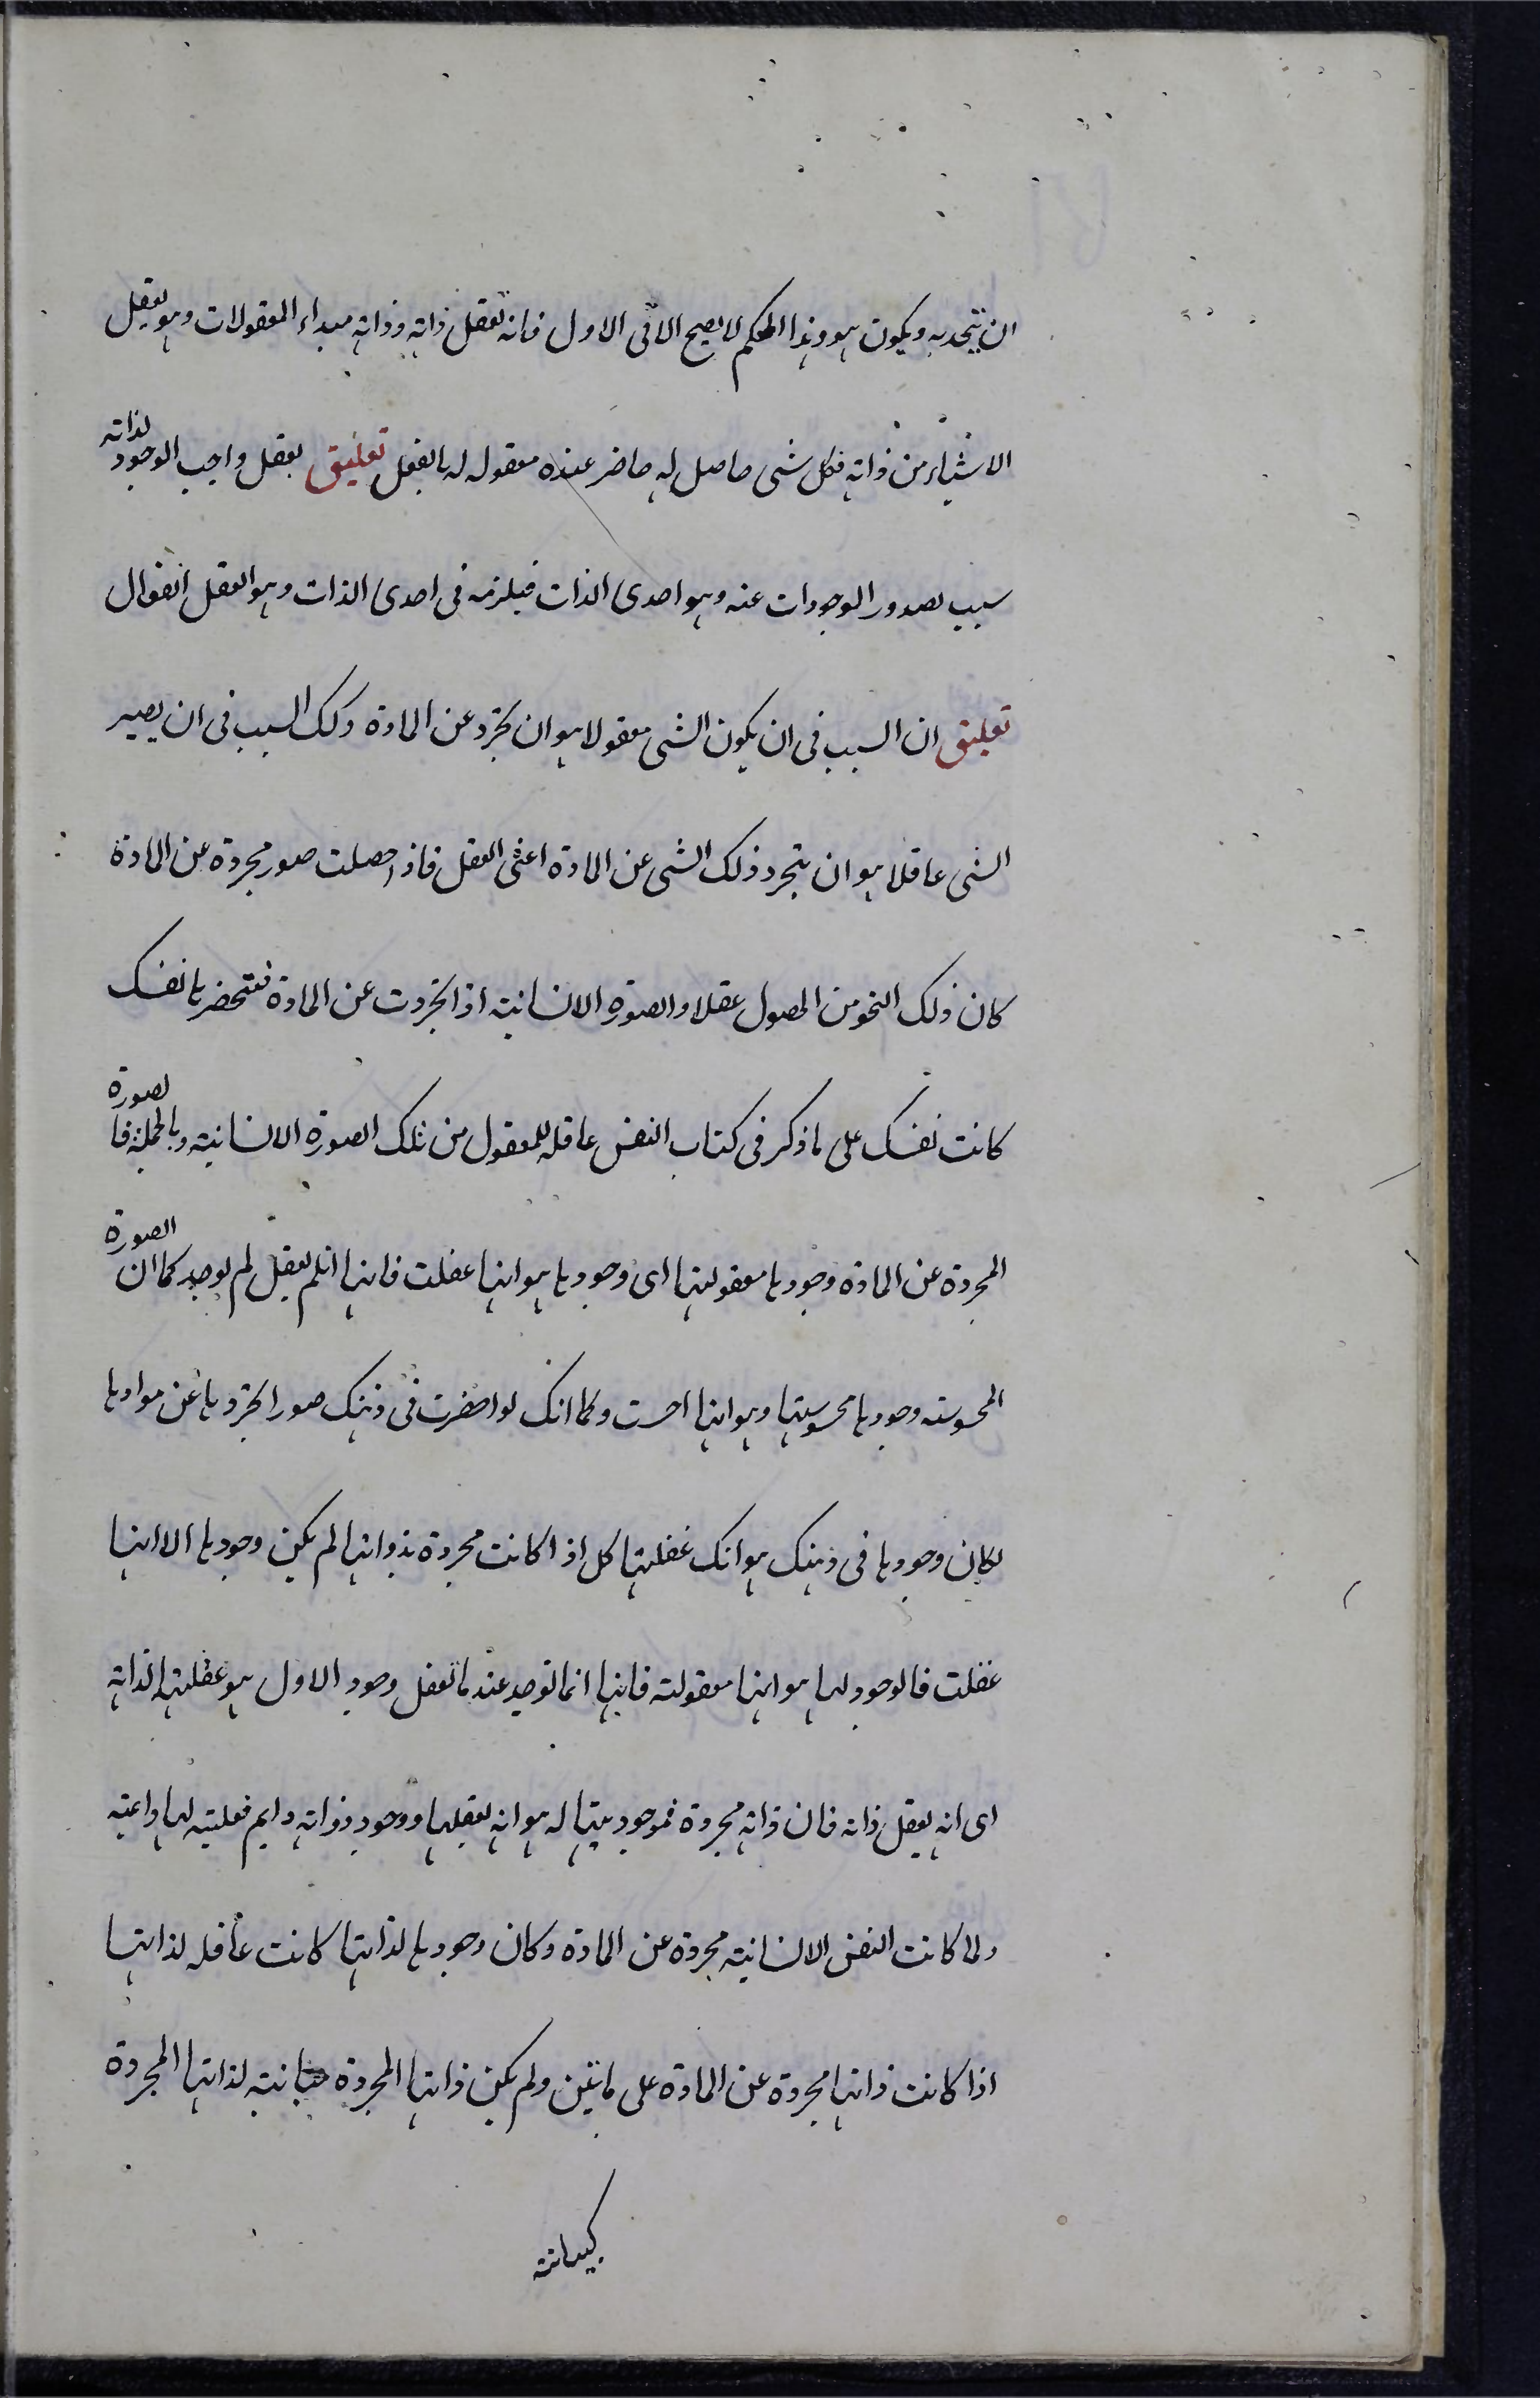 ان يتحد به ويكون هو وهذا الحكم لا يصح الا فى الاول فانه تعقل ذاته وذاته مبداء المعقولات وهو يعقل
الاشياء من ذاته فكل شى حاصل له حاضر عنده معقول له بالفعل تعليق يعقل واجب الوجود لذاته
سبب لصدور الوجودات عنه وهو احدى الذات فيلزمه فى احدى الذات وهو العقل الفعال
تعليق ان السبب فى ان يكون الشى معقولا هو ان تجرد عن المادة وكك السبب فى ان يصير
الشى عاقلا هو ان يتجرد ذلك الشى عن المادة اعنى العقل فاذا حصلت صور مجردة عن المادة
كان ذلك النحو من الحصول عقلا والصورة الانسانية اذا تجردت عن المادة فتحضرها نفسك
كانت نفسك على ما ذكر فى كتاب النفس عاقله للمعقول من تلك الصورة الانسانية وبالجملة فالصورة
المجردة عن المادة وجودها معقوليتها اى وجودها هو انها عقلت فانها ان لم يعقل لم توجد كما ان الصورة
المحسوسة وجودها محسوسيتها وهو انها احست وكما انك لو احضرت فى ذهنك صورا تجردها عن موادها
لكان وجودها فى ذهنك هو انك عقلتها كك اذا كانت مجردة بذواتها لم يكن وجودها الا انها
عقلت فالوجود لها هو انها معقولته فانها انما توجد عندما تعقل وجود الاول هو عقليتها لذاته
اى انه يعقل ذاته فان ذاته مجردة فموجوديتها له هو انه يعقلها ووجود ذواته دايم فعليته لها دايمة
ولما كانت النفس الانسانية مجردة عن المادة وكان وجودها لذاتها كانت عاقله لذاتها
اذا كانت ذاتها مجردة عن المادة على ما تبين ولم يكن ذاتها المجردة مباينة لذاتها المجردة